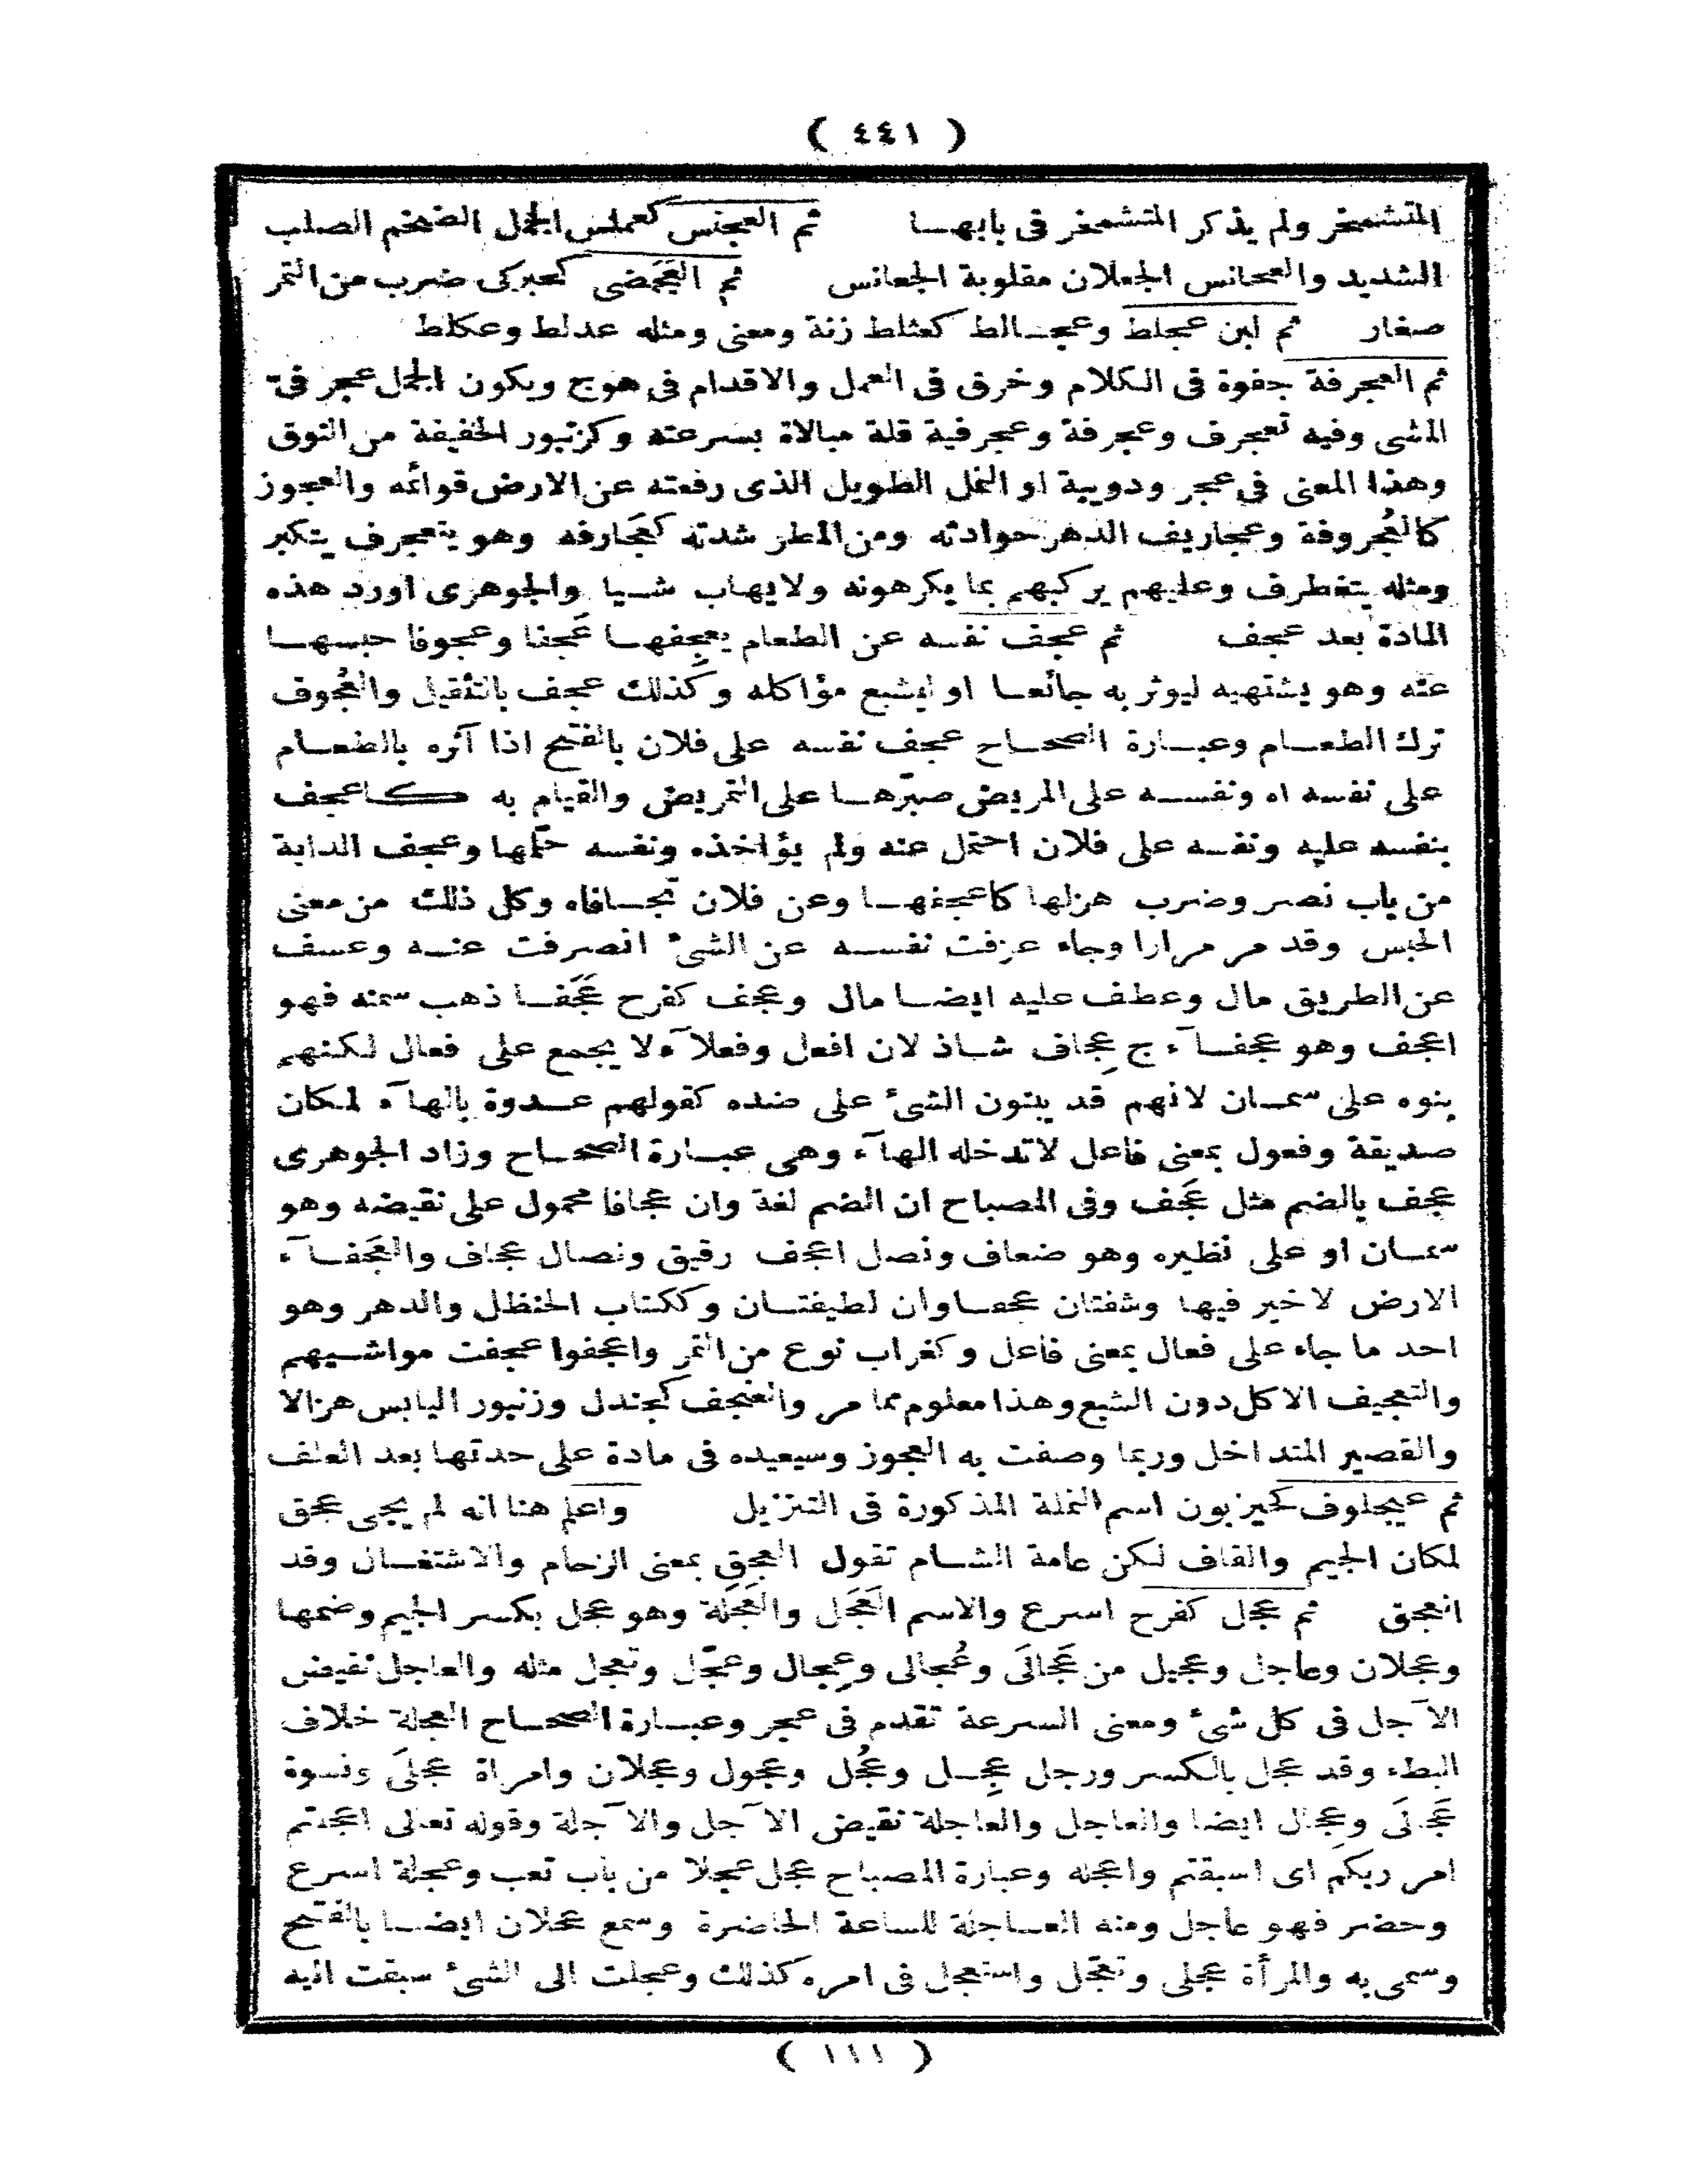 ( ٤٤١ )
المتشمخر ولم يذكر المتشمخر فى بابهـا ثم العجنس كعملس الجمل الضخم الصلب
الشديد والعجانس الجعلان مقلوبة الجعانس ثم العَجَمضى كحبركى ضرب من التمر
صغار ثم لبن عجلط وعجـالط كعثلط زنة ومعنى ومثله عدلط وعكلط
ثم العجرفة جفوة فى الكلام وخرق فى العمل والاقدام فى هوج ويكون الجمل عجرفى
المشى وفيه تعجرف وعجرفة وعجرفية قلة مبالاة بسرعته وكزنبور الخفيفة من النوق
وهذا المعنى فى عجر ودويبة او النمل الطويل الذى رفعته عن الارض قوائمه والعجوز
كالعُجروفة وعجاريف الدهر حوادثه ومن المطر شدته كعَجارفه وهو يتعجرف يتكبر
ومثله يتغطرف وعليهم يركبهم بما يكرهونه ولايهاب شـيا والجوهرى اورد هذه
المادة بعد عجف ثم عجف نفسه عن الطعام يعجِفهـا عَجفا وعجوفا حبسهـا
عنه وهو يشتهيه ليوثر به جائعـا او ليشبع مؤاكله وكذلك عجف بالتثقيل والعُجوف
ترك الطعـام وعبـارة الصحـاح عجف نفسه على فلان بالفتح اذا آثره بالطعـام
على نفسه اه ونفسـه على المريض صبّرهـا على التمريض والقيام به كاعجف
بنفسه عليه ونفسه على فلان احتمل عنه ولم يؤاخذه ونفسه حلّمها وعجف الدابة
من باب نصر وضرب هزلها كاعجفهـا وعن فلان تجـافاه وكل ذلك من معنى
الحبس وقد مر مرارا وجاء عزفت نفسـه عن الشئ انصرفت عنـه وعسف
عن الطريق مال وعطف عليه ايضـا مال وعجف كفرح عَجَفـا ذهب سمنه فهو
اعجف وهو عجفـآء ج عِجاف شـاذ لان افعل وفعلآء لا يجمع على فعال لكنهم
بنوه على سمـان لانهم قد يبنون الشئ على ضده كقولهم عـدوة بالهآء لمكان
صديقة وفعول بمعنى فاعل لاتدخله الهآء وهى عبـارة الصحـاح وزاد الجوهرى
عجف بالضم مثل عَجف وفى المصباح ان الضم لغة وان عجافا محمول على نقيضه وهو
سمـان او على نظيره وهو ضعاف ونصل اعجف رقيق ونصال عجاف والعَجَفـآء
الارض لاخير فيها وشفتان عجفـاوان لطيفتـان وككتاب الحنظل والدهر وهو
احد ما جاء على فعال بمعنى فاعل وكغراب نوع من التمر واعجفوا عجفت مواشـيهم
والتعجيف الاكل دون الشبع وهذا معلوم مما مر والعنجف كجندل وزنبور اليابس هزالا
والقصير المتداخل وربما وصفت به العجوز وسيعيده فى مادة على حدتها بعد العلف
ثم عيجلوف كحيزبون اسم النملة المذكورة فى التنزيل واعلم هنا انه لم يجى عجق
لمكان الجيم والقاف لكن عامة الشـام تقول العجق بمعنى الزحام والاشتغـال وقد
انعجق ثم عجل كفرح اسرع والاسم العَجَل والعَجَلة وهو عجل بكسر الجيم وضمها
وعجلان وعاجل وعجيل من عَجالَى وعُجالى وعِجال وعجّل وتعجل مثله والعاجل نقيض
الآجل فى كل شئ ومعنى السرعة تقدم فى عجر وعبـارة الصحـاح العجلة خلاف
البطء وقد عجل بالكسر ورجل عجِـل وعجُل وعجول وعجلان وامراة عجلَى ونسوة
عَجالَى وعِجال ايضا والعاجل والعاجلة نقيض الآجل والآجلة وقوله تعالى اعجلتم
امر ربكم اى اسبقتم واعجله وعبارة المصباح عجل عجلا من باب تعب وعجلة اسرع
وحضر فهو عاجل ومنه العـاجلة للساعة الحاضرة وسمع عجلان ايضـا بالفتح
وسمى به والمرأة عجلى وتعجّل واستعجل فى امره كذلك وعجلت الى الشئ سبقت اليه
( ١١١ )